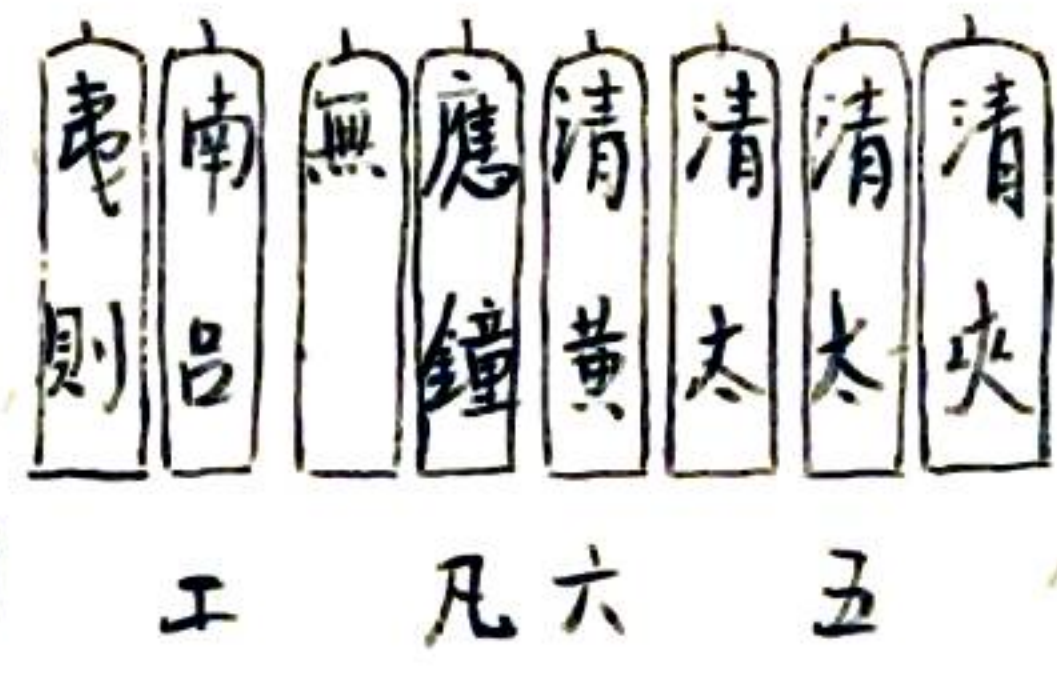 夷則
南吕
無
應鐘
清黄
清太
清太
清夾
工 凡 六 五